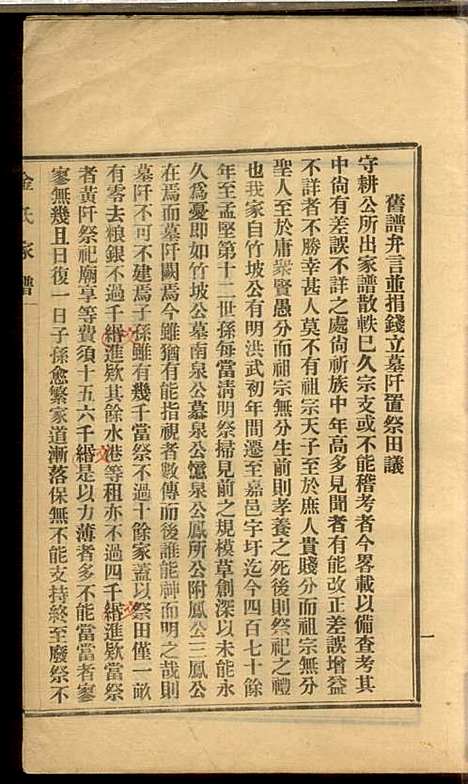 舊譜弁言並捐錢立墓阡置祭田議
守耕公所出家譜散軼已久宗支或不能稽考者今畧載以備查考其
中尙有差誤不詳之處尙祈族中年高多見聞者有能改正差誤增益
不詳者不勝幸甚人莫不有祖宗天子至於庶人貴賤分而祖宗無分
聖人至於庸衆賢愚分而祖宗無分生前則孝養之死後則祭祀之禮
也我家自竹坡公有明洪武初年間遷至嘉邑宇圩迄今四百七十餘
年至孟堅第十二世孫每當淸明祭掃見前之規模草創深以未能永
久爲憂卽如竹坡公墓南泉公墓泉公憶泉公鳳所公附鳳公三鳳公
在焉而墓阡闕焉今雖猶有能指視者數傳而後誰能神而明之哉則
墓阡不可不建焉子孫雖有幾千當祭不過十餘家蓋以祭田僅一畝
有零去糧銀不過千緡進欵其餘水港等租亦不過四千緡進欵當祭
者黃阡祭祀廟享等費須十五六千緡是以力薄者多不能當當者寥
寥無幾且日復一日子孫愈繁家道漸落保無不能支持終至廢祭不
金氏家譜
一